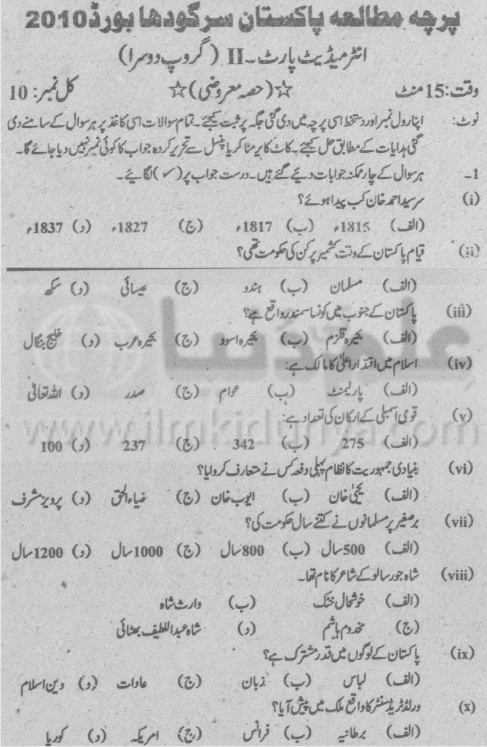 پرچہ مطالعہ پاکستان سرگودھا بورڈ 2010
انٹرمیڈیٹ پارٹ۔II (گروپ دوسرا)
وقت: 15 منٹ ☆(حصہ معروضی)☆ کل نمبر: 10
نوٹ: اپنا رول نمبر اور دستخط اسی پرچہ میں دی گئی جگہ پر ثبت کیجئے۔ تمام سوالات اسی کاغذ پر ہر سوال کے سامنے دی
گئی ہدایات کے مطابق حل کیجئے۔ کاٹ کر یا مٹا کر یا پنسل سے تحریر کردہ جواب کا کوئی نمبر نہیں دیا جائے گا۔
1۔ ہر سوال کے چار ممکنہ جوابات دیئے گئے ہیں۔ درست جواب پر (✓) لگائیے۔
(i) سرسید احمد خان کب پیدا ہوئے؟
(الف) 1815ء (ب) 1817ء (ج) 1827ء (د) 1837ء
(ii) قیام پاکستان کے وقت کشمیر پر کن کی حکومت تھی؟
(الف) مسلمان (ب) ہندو (ج) عیسائی (د) سکھ
(iii) پاکستان کے جنوب میں کونسا سمندر واقع ہے؟
(الف) بحیرہ قلزم (ب) بحیرہ اسود (ج) بحیرہ عرب (د) خلیج بنگال
(iv) اسلام میں اقتدار اعلیٰ کا مالک ہے:
(الف) پارلیمنٹ (ب) عوام (ج) صدر (د) اللہ تعالیٰ
(v) قومی اسمبلی کے ارکان کی تعداد ہے:
(الف) 275 (ب) 342 (ج) 237 (د) 100
(vi) بنیادی جمہوریت کا نظام پہلی دفعہ کس نے متعارف کروایا؟
(الف) یحییٰ خان (ب) ایوب خان (ج) ضیاء الحق (د) پرویز مشرف
(vii) برصغیر پر مسلمانوں نے کتنے سال حکومت کی؟
(الف) 500 سال (ب) 800 سال (ج) 1000 سال (د) 1200 سال
(viii) شاہ جو رسالو کے شاعر کا نام تھا۔
(الف) خوشحال خٹک (ب) وارث شاہ
(ج) مخدوم ہاشم (د) شاہ عبداللطیف بھٹائی
(ix) پاکستان کے لوگوں میں قدر مشترک ہے؟
(الف) لباس (ب) زبان (ج) عادات (د) دین اسلام
(x) ورلڈ ٹریڈ سنٹر کا واقع ملک میں پیش آیا؟
(الف) برطانیہ (ب) فرانس (ج) امریکہ (د) کوریا
علم کی دنیا
www.ilmkidunya.com